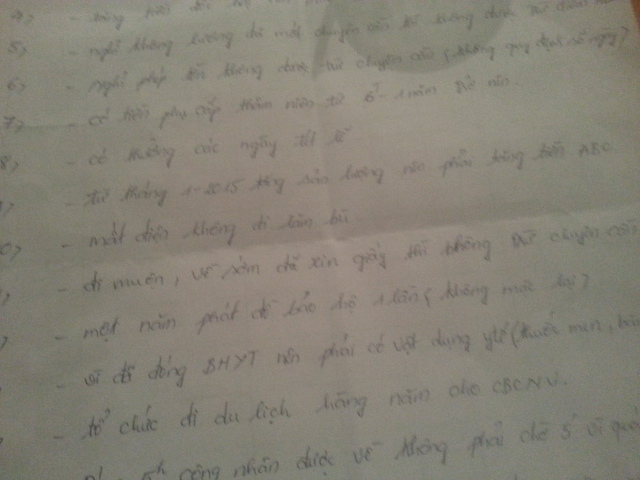 5, - nghỉ không lương đã mất chuyên cần thì không được trừ
6, - nghỉ phép thì không được trừ chuyên cần (không quy định số ngày)
7, - có tiền phụ cấp thâm niên từ 6th - 1 năm trở lên.
8, - có thưởng các ngày tết lễ
- từ tháng 1-2015 tăng sản lượng nên phải tăng tiền ABC
- mất điện không đi làm bù.
- đi muộn, về sớm đã xin giấy thì không trừ chuyên cần
- một năm phát đồ bảo hộ 1 lần (không móc lại)
- vì đã đóng BHYT nên phải có vật dụng y tế (thuốc men,
- tổ chức đi du lịch hằng năm cho CBCNV.
5h công nhân được về không phải chờ 5' vì